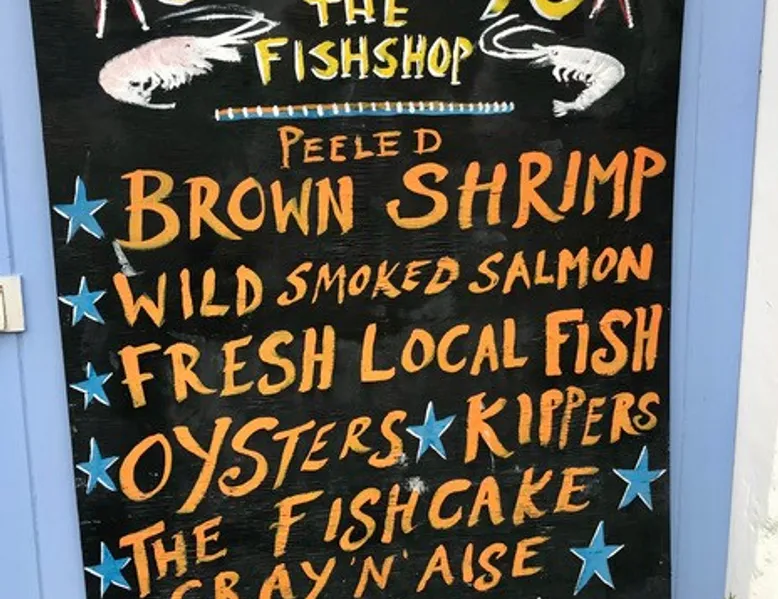 THE
FISHSHOP
PEELED
BROWN SHRIMP
WILD SMOKED SALMON
FRESH LOCAL FISH
OYSTERS KIPPERS
THE FISHCAKE
CRAY'N'AISE